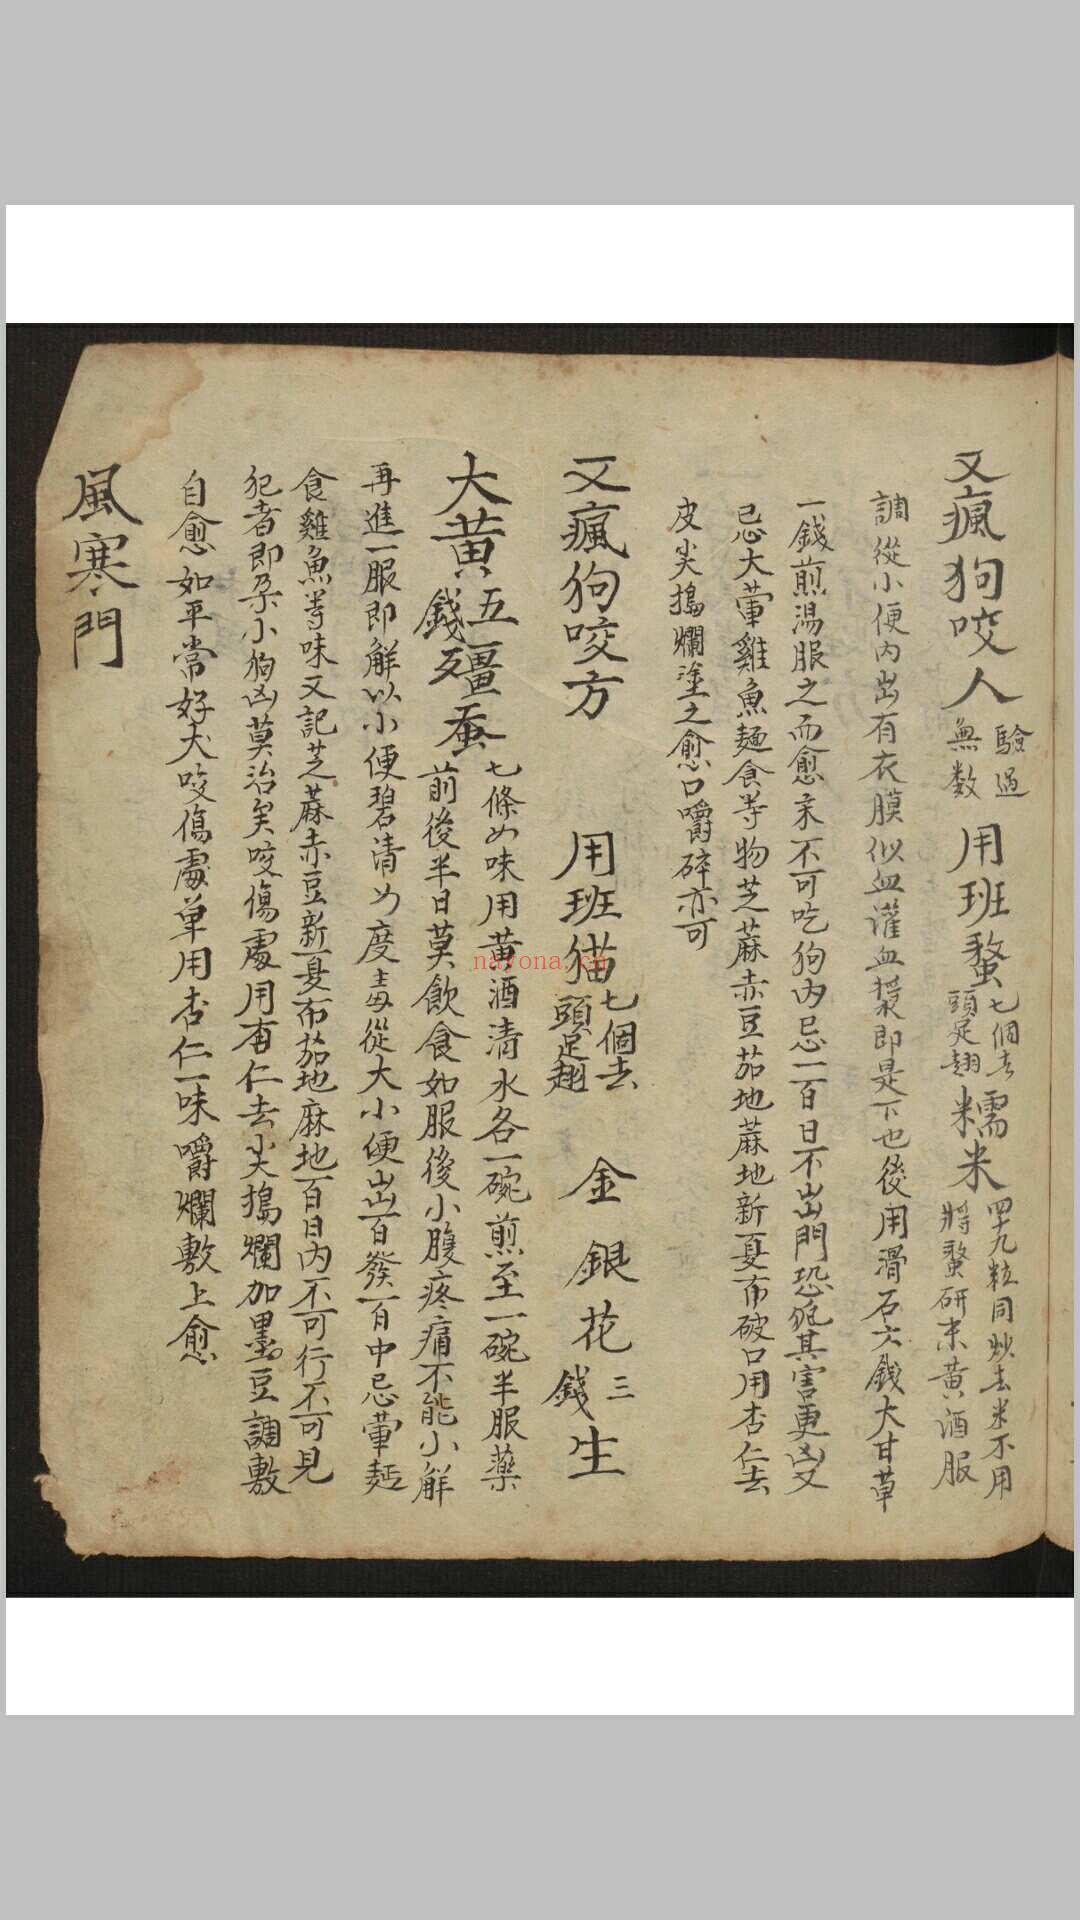 又瘋狗咬人 驗過無数 用班蝥 七個去頭足翅 糯米 四十九粒同炒去米不用將蝥研末黃酒服
調從小便內出有衣膜似血灌血裹即是下也後用滑石六錢大甘草
一錢煎湯服之而愈末不可吃狗內忌一百日不出門恐犯其害更凶又
忌大葷雞魚麵食等物芝蔴赤豆茄地蔴地新夏布破口用杏仁去
皮尖搗爛塗之愈口嚼碎亦可
又瘋狗咬方 用班猫 七個去頭足翅 金銀花 三錢 生
大黃 五錢 殭蚕 七條 味用黃酒清水各一碗煎至一碗半服藥
前後半日莫飲食如服後小腹疼痛不能小解
再進一服即解以小便碧清 度毒從大小便出百發百中忌葷
食雞魚等味又記芝蔴赤豆新夏布茄地麻地百日內不可行不可見
犯者即朶小狗凶莫治矣咬傷處用杏仁去尖搗爛加墨豆調敷
自愈如平常好犬咬傷處单用杏仁一味嚼爛敷上愈
風寒門
nayona.cn